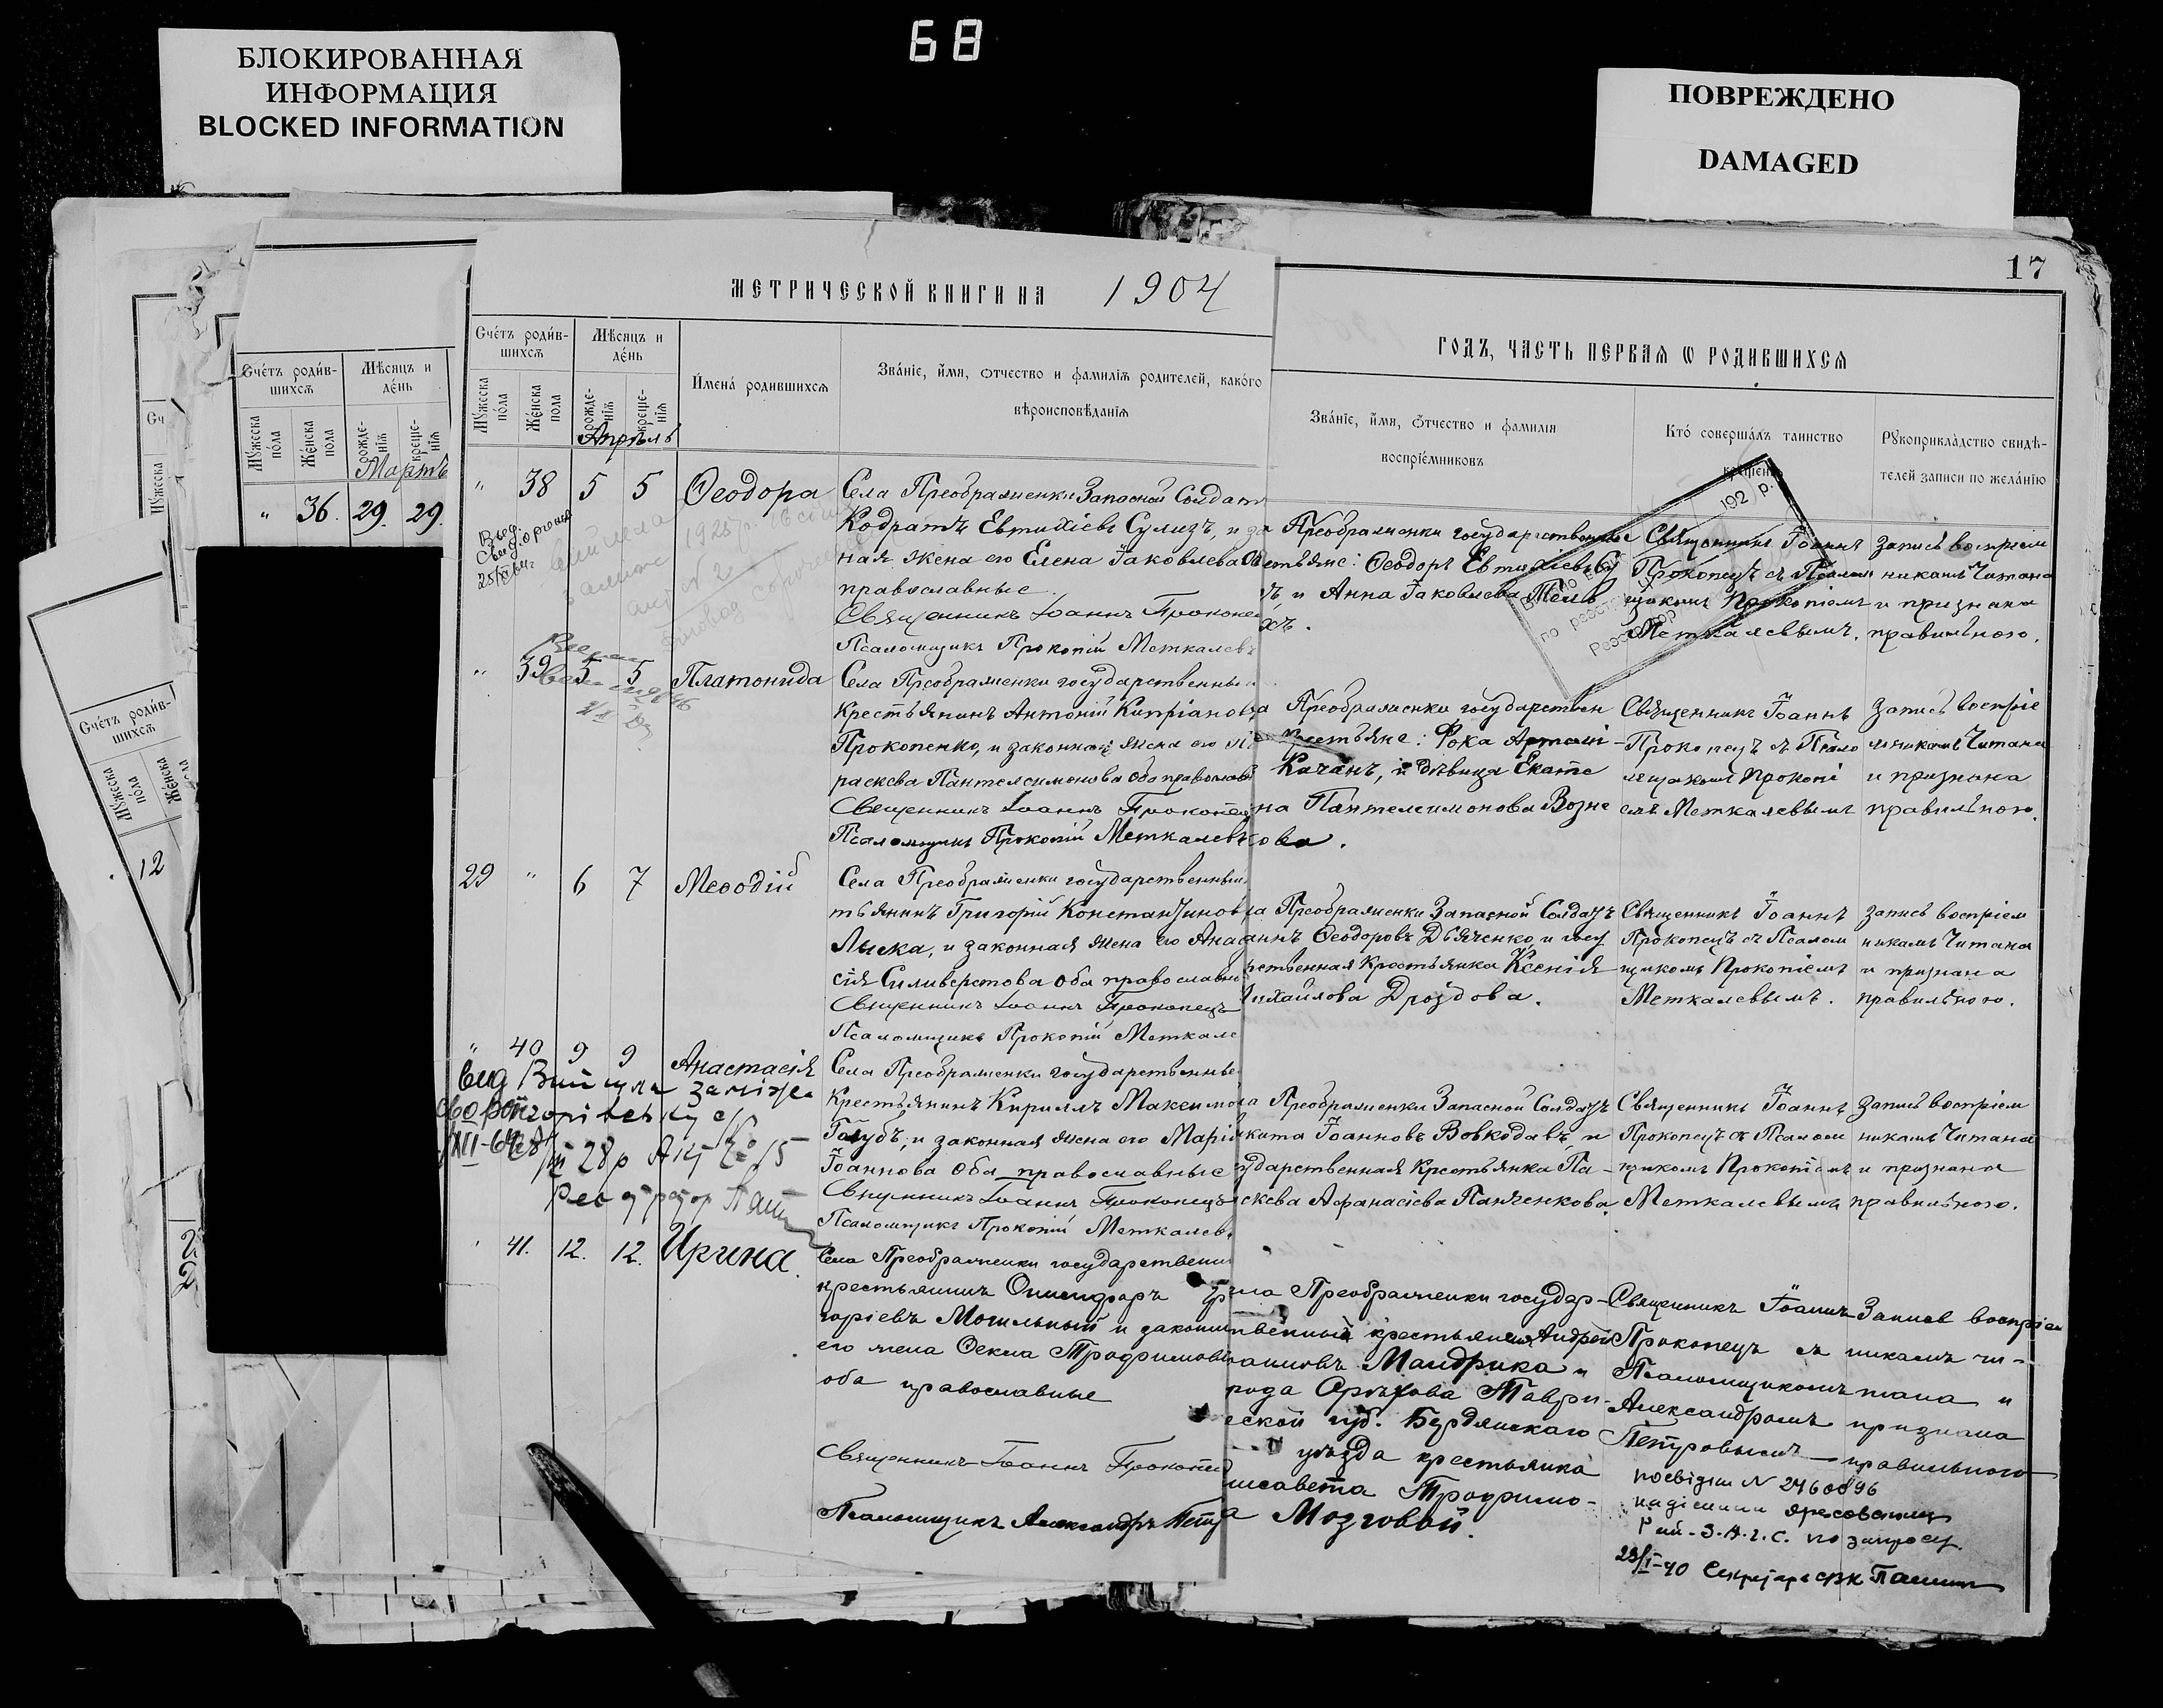 68
БЛОКИРОВАННАЯ
ИНФОРМАЦИЯ
BLOCKED INFORMATION
ПОВРЕЖДЕНО
DAMAGED
17
МЕТРИЧЕСКОЙ КНИГИ НА 1904
ГОДЪ, ЧАСТЬ ПЕРВАЯ Ѡ РОДИВШИХСЯ
Сче́тъ роди́в-
шихсѧ
Мѣсяцъ и
де́нь
Мꙋжеска
по́ла
Же́нска
пола
рожде-
нїѧ
креще-
нїѧ
Мартъ
" 36. 29. 29.
Сче́тъ роди́в-
шихсѧ
Мꙋжеска
по́ла
Же́нска
12
Сче́тъ роди́в-
шихсѧ
Мѣсяцъ и
де́нь
И́мена́ родившихсѧ
Зва́нїе, и́мя, ѻтчество и фамилїѧ родителей, како́го
вѣроисповѣданїѧ
Зва́нїе, и́мя, ѻтчество и фамилїѧ
воспрїе́мниковъ
Кто́ соверша́лъ таинство
крещенїѧ
Рꙋкоприкла́дство свидѣ-
телей записи по жела́нїю
Мꙋжеска
по́ла
Же́нска
пола
рожде-
нїѧ
креще-
нїѧ
Апрѣль
" 38 5 5 Ѳеодора
Села Преображенки Запасной Солдат
Кодратъ Евтихіевъ Сулизъ, и за
ная жена его Елена Іаковлева
православные
Священникъ Іоаннъ Прокопец
Псаломщикъ Прокопій Меткалевъ
Преображенки государственные
Ѳеодоръ Евтихіевъ
и Анна Іаковлева
хъ.
Священникъ Іоаннъ
Прокопецъ съ Псалом
щикомъ Прокопіемъ
Меткалевымъ.
запись воспріем
никамъ Читана
и признана
правильною.
192 р.
" 39 5 5 Платонида
Села Преображенки государственный
крестьянинъ Антоній Кипріановъ
Прокопенко, и законная жена его
раскева Пантелеимонова оба православ
Священникъ Іоаннъ Прокопец
Псаломщикъ Прокопій Меткалевъ
Преображенки государствен
крестьяне: Фока
Качанъ, и дѣвица Екате
на Пантелеимонова Возне
ова.
Священникъ Іоаннъ
Прокопецъ съ Псало
мщикомъ Прокопі
емъ Меткалевымъ
запись воспріе
мникамъ Читана
и признана
правильною.
29 " 6 7 Меѳодій
Села Преображенки государственный
тьянинъ Григорій Константинов
Лыска, и законная жена его Анас
сія Силиверстова оба православн
Священникъ Іоаннъ Прокопецъ
Псаломщикъ Прокопій Меткале
Преображенки Запасной Солдатъ
аннъ Ѳеодоровъ Дьяченко, и госу
рственная Крестьянка Ксенія
ихайлова Дроздова.
Священникъ Іоаннъ
Прокопецъ съ Псалом
щикомъ Прокопіемъ
Меткалевымъ.
запись воспріем
никамъ Читана
и признана
правильною.
" 40 9 9 Анастасія
Села Преображенки государственны
Крестьянинъ Кириллъ Максимо
Голубъ, и законная жена его Марі
Іоаннова оба православные
Священникъ Іоаннъ Прокопецъ
Псаломщикъ Прокопій Меткалев.
Преображенки Запасной Солдатъ
кита Іоанновъ Вовкодавъ, и
ударственная Крестьянка Па-
скева Аѳанасіева Панченкова.
Священникъ Іоаннъ
Прокопецъ съ Псалом
щикомъ Прокопіемъ
Меткалевымъ
запись воспріем
никамъ Читана
и признана
правильною.
41. 12. 12. Ирина.
Села Преображенки государствен
крестьянинъ Онисифоръ Гр
горіевъ Могильный и законн
его жена Ѳекла Трофимов
оба православные
Священникъ Іоаннъ Прокопец
Псаломщикъ Александръ Петр
ла Преображенки государ-
твенный крестьянинъ Андрей
Мандрика и
рода Орѣхова Таври-
еской губ. Бердянскаго
уѣзда крестьянка
лисавета Трофимо-
а Мозговой.
Священникъ Іоаннъ
Прокопецъ съ
Псаломщикомъ
Александромъ
Петровымъ
Запись воспріем
никамъ чи-
тана и
признана
правильною
N 2460896
Рай-З.А.Г.С. по запросу
23/I-40 Секретарь